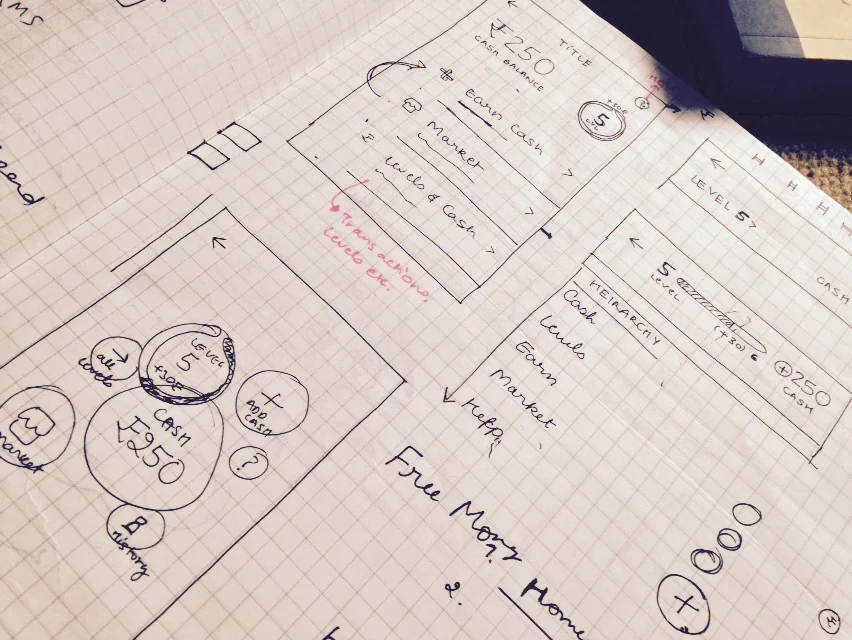 TITLE
₹250
CASH BALANCE
+30₹
5
LVL
Earn Cash >
Market >
Levels & Cash >
Transactions,
Levels etc.
←
LEVEL 5 >
CASH
←
5
LEVEL
(+30)
+250
CASH
HEIRARCHY
Cash
Levels
Earn
Market
Help
←
LEVEL
5
+30₹
all
levels
+
ADD
CASH
CASH
₹250
?
market
History
Free Mony
2. Home
+